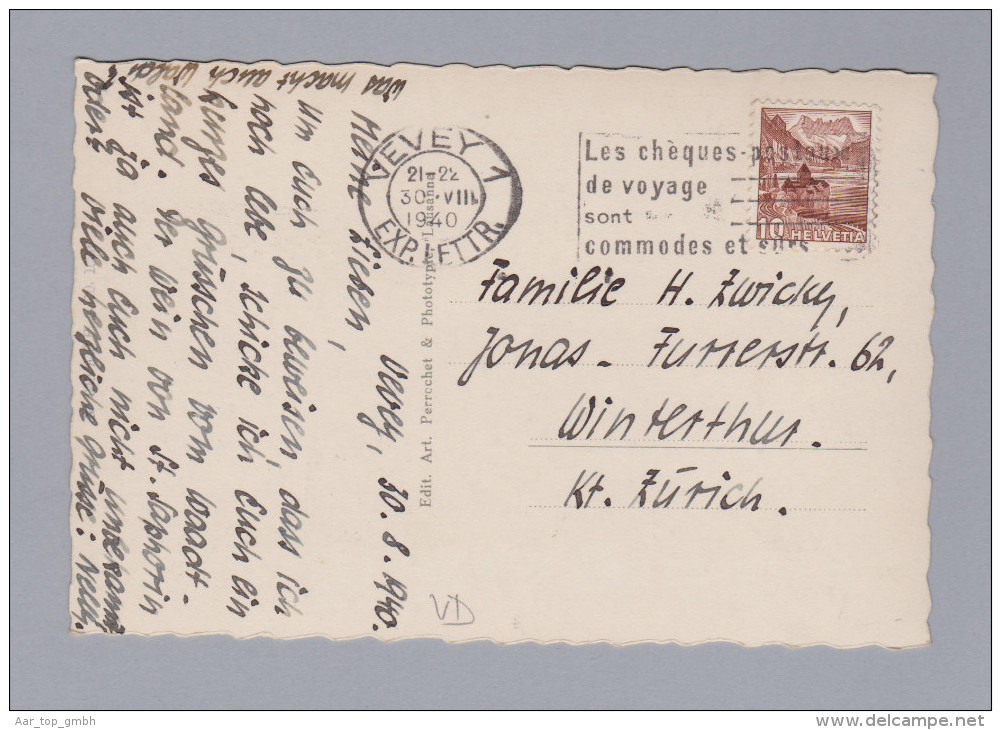 Vevey, 30.8.1940.
Meine Lieben,
Um Euch zu beweisen, dass ich
noch lebe, schicke ich Euch ein
kurzes Grüsschen vom Waadt-
land. Der Wein von St. Saphorin
ist ja auch Euch nicht unbekannt
oder? Viele herzliche Grüsse:
Was macht auch
VEVEY 1
21-22
30.VIII.
1940
EXP. LETTR.
Les chèques-postaux
de voyage
sont
commodes et sûrs
10 HELVETIA
Edit. Art. Perrochet & Phototypie, Lausanne
Familie H. Zwicky,
Jonas-Furrerstr. 62,
Winterthur.
Kt. Zürich.
VD
Aar_top_gmbh
delcampe.net